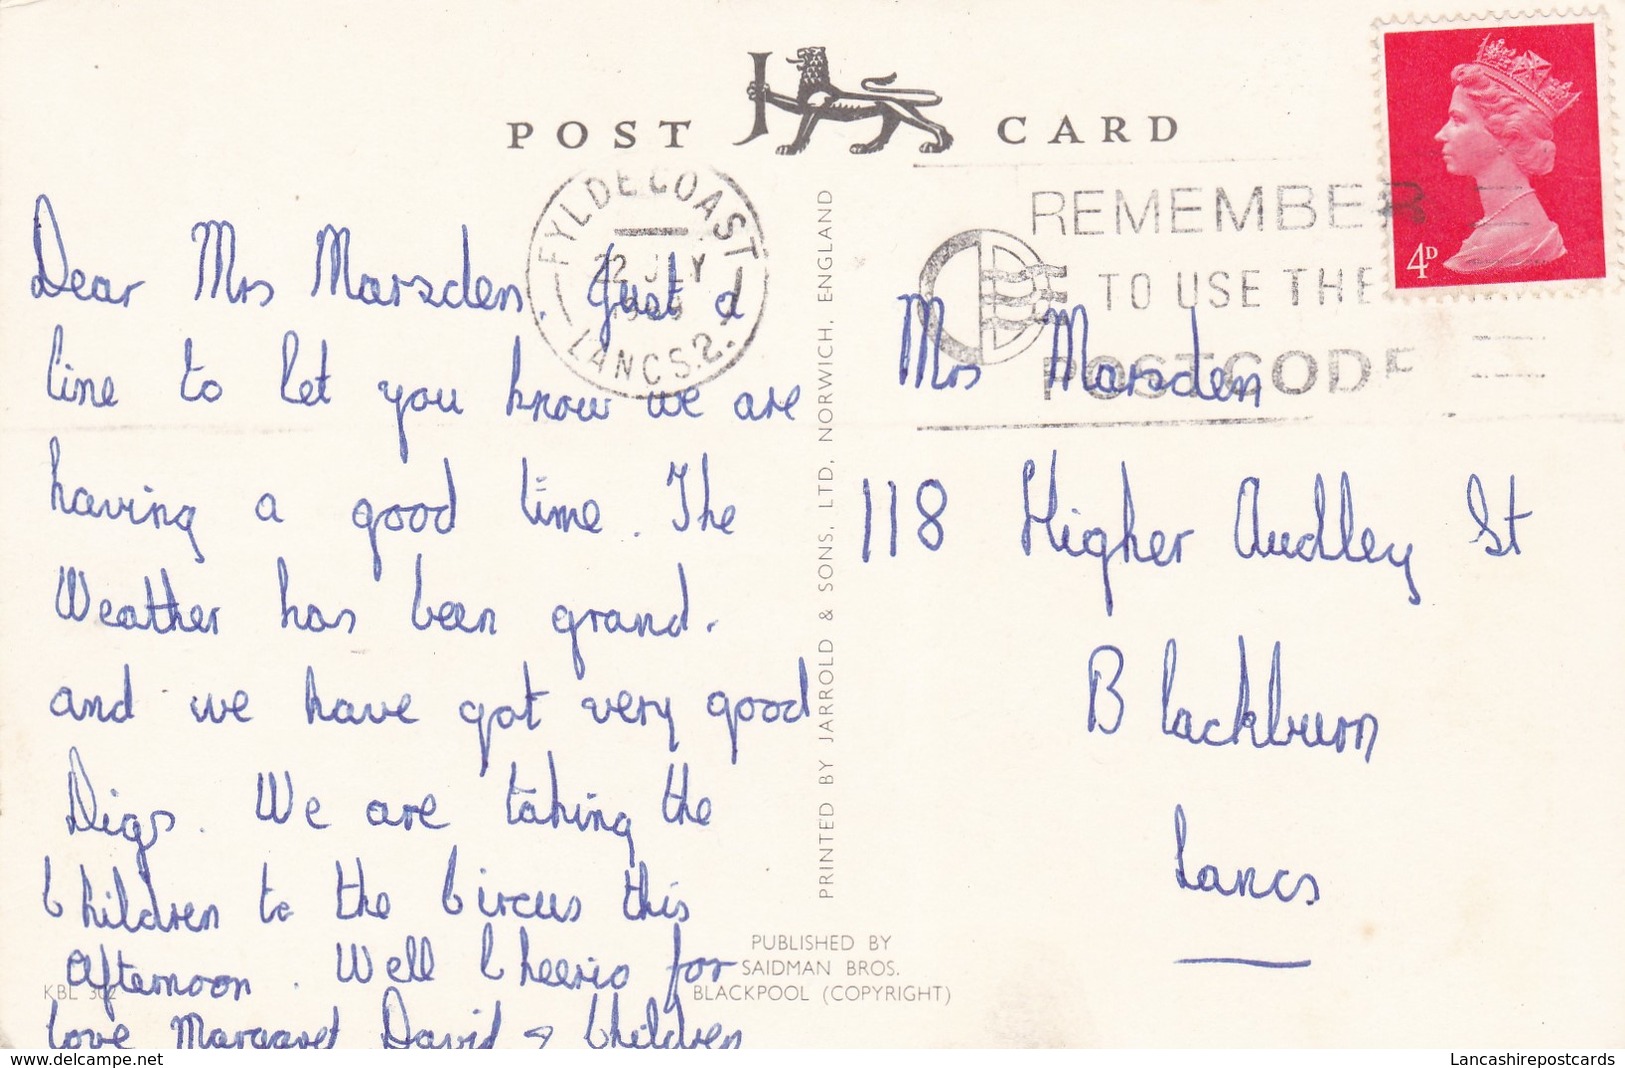 POST CARD
FYLDE COAST
22 JLY
LANCS. 2.
REMEMBER
TO USE THE
POSTCODE
4D
Dear Mrs Marsden. Just a
line to let you know we are
having a good time. The
Weather has been grand.
and we have got very good
Digs. We are taking the
Children to the Circus this
afternoon. Well Cheerio for
love Margaret David & Children
PRINTED BY JARROLD & SONS, LTD, NORWICH, ENGLAND
Mrs Marsden
118 Higher Audley St
Blackburn
Lancs
PUBLISHED BY
SAIDMAN BROS.
BLACKPOOL (COPYRIGHT)
KBL 302
www.delcampe.net
Lancashirepostcards